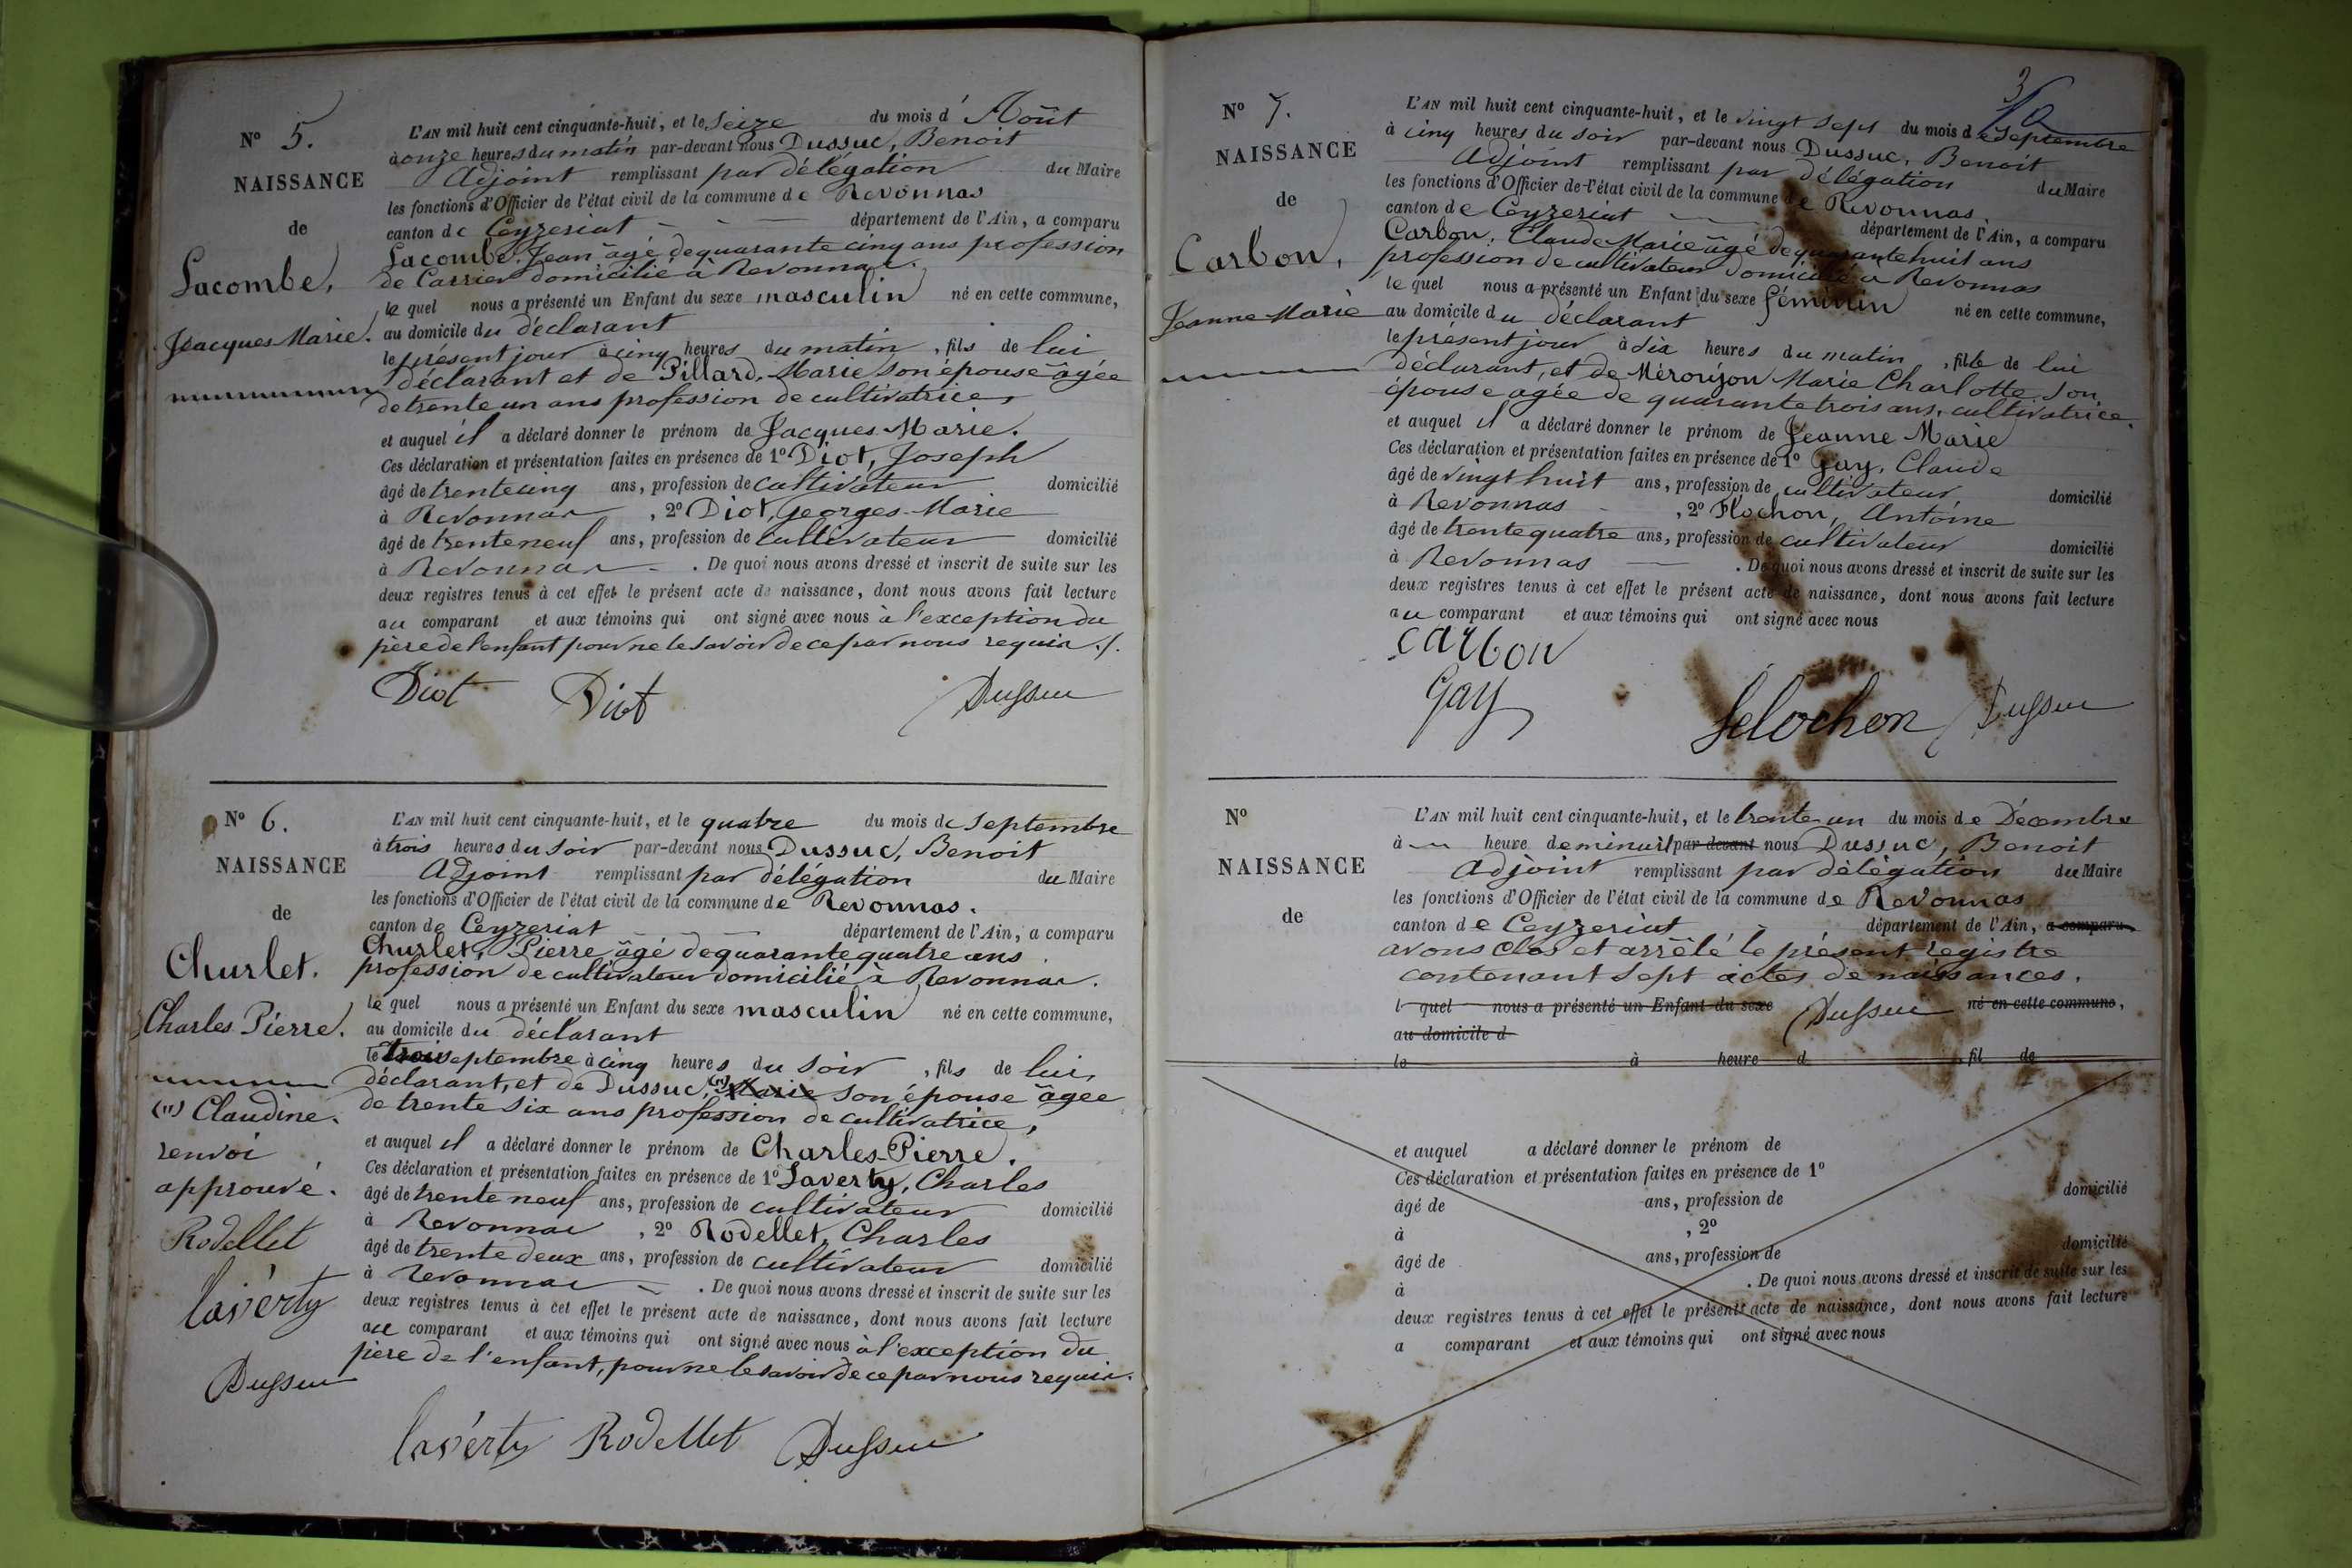 N° 5.
NAISSANCE
de
Lacombe,
Jacques Marie.
L'AN mil huit cent cinquante-huit, et le Seize du mois d'Août
à onze heures du matin par-devant nous Dussuc, Benoit
Adjoint remplissant par délégation du Maire
les fonctions d'Officier de l'état civil de la commune de Revonnas
canton de Ceyzeriat département de l'Ain, a comparu
Lacombe, Jean âgé de quarante cinq ans profession
de Carrier domicilié à Revonnas.
le quel nous a présenté un Enfant du sexe masculin né en cette commune,
au domicile du déclarant
le présent jour à cinq heures du matin, fils de lui
déclarant et de Pillard, Marie son épouse âgée
de trente un ans profession de cultivatrice,
et auquel il a déclaré donner le prénom de Jacques-Marie.
Ces déclaration et présentation faites en présence de 1° Diot, Joseph
âgé de trente cinq ans, profession de cultivateur domicilié
à Revonnas, 2° Diot, Georges-Marie
âgé de trente neuf ans, profession de cultivateur domicilié
à Revonnas. De quoi nous avons dressé et inscrit de suite sur les
deux registres tenus à cet effet le présent acte de naissance, dont nous avons fait lecture
au comparant et aux témoins qui ont signé avec nous à l'exception du
père de l'enfant pour ne le savoir de ce par nous requis ./.
Diot Diot Dussuc
N° 6.
NAISSANCE
de
Churlet.
Charles Pierre.
(1) Claudine.
renvoi
approuvé.
Rodellet
Laverty
Dussuc
L'AN mil huit cent cinquante-huit, et le quatre du mois de Septembre
à trois heures du soir par-devant nous Dussuc, Benoit
Adjoint remplissant par délégation du Maire
les fonctions d'Officier de l'état civil de la commune de Revonnas.
canton de Ceyzeriat département de l'Ain, a comparu
Churlet, Pierre, âgé de quarante quatre ans
profession de cultivateur domicilié à Revonnas.
le quel nous a présenté un Enfant du sexe masculin né en cette commune,
au domicile du déclarant
le trois septembre à cinq heures du soir, fils de lui,
déclarant, et de Dussuc, (1) Marie son épouse âgée
de trente six ans profession de cultivatrice,
et auquel il a déclaré donner le prénom de Charles-Pierre.
Ces déclaration et présentation faites en présence de 1° Laverty, Charles
âgé de trente neuf ans, profession de cultivateur domicilié
à Revonnas, 2° Rodellet, Charles
âgé de trente deux ans, profession de cultivateur domicilié
à Revonnas. De quoi nous avons dressé et inscrit de suite sur les
deux registres tenus à cet effet le présent acte de naissance, dont nous avons fait lecture
au comparant et aux témoins qui ont signé avec nous à l'exception du
père de l'enfant, pour ne le savoir de ce par nous requis.
Laverty Rodellet Dussuc
3
N° 7.
NAISSANCE
de
Carbon,
Jeanne Marie
L'AN mil huit cent cinquante-huit, et le vingt sept du mois de Septembre
à cinq heures du soir par-devant nous Dussuc, Benoit
Adjoint remplissant par délégation du Maire
les fonctions d'Officier de l'état civil de la commune de Revonnas.
canton de Ceyzeriat département de l'Ain, a comparu
Carbon, Claude Marie âgé de quarante huit ans
profession de cultivateur domicilié à Revonnas
le quel nous a présenté un Enfant du sexe féminin né en cette commune,
au domicile du déclarant
le présent jour à dix heures du matin, fille de lui
déclarant, et de Méroujon Marie Charlotte son
épouse agée de quarante trois ans, cultivatrice.
et auquel il a déclaré donner le prénom de Jeanne Marie
Ces déclaration et présentation faites en présence de 1° Gay, Claude
âgé de vingt huit ans, profession de cultivateur, domicilié
à Revonnas, 2° Flochon, Antoine
âgé de trente quatre ans, profession de cultivateur domicilié
à Revonnas. De quoi nous avons dressé et inscrit de suite sur les
deux registres tenus à cet effet le présent acte de naissance, dont nous avons fait lecture
au comparant et aux témoins qui ont signé avec nous
carbon
Gay felochon Dussuc
N°
NAISSANCE
de
L'AN mil huit cent cinquante-huit, et le trente-un du mois de Décembre
à heure de minuit par-devant nous Dussuc, Benoit
Adjoint remplissant par délégation du Maire
les fonctions d'Officier de l'état civil de la commune de Revonnas
canton de Ceyzeriat département de l'Ain, a comparu
avons clos et arrêté le présent registre
contenant sept actes de naissances.
l quel nous a présenté un Enfant du sexe Dussuc né en cette commune,
au domicile d
le à heure d , fil de
et auquel a déclaré donner le prénom de
Ces déclaration et présentation faites en présence de 1°
âgé de ans, profession de domicilié
à , 2°
âgé de ans, profession de domicilié
à . De quoi nous avons dressé et inscrit de suite sur les
deux registres tenus à cet effet le présent acte de naissance, dont nous avons fait lecture
a comparant et aux témoins qui ont signé avec nous